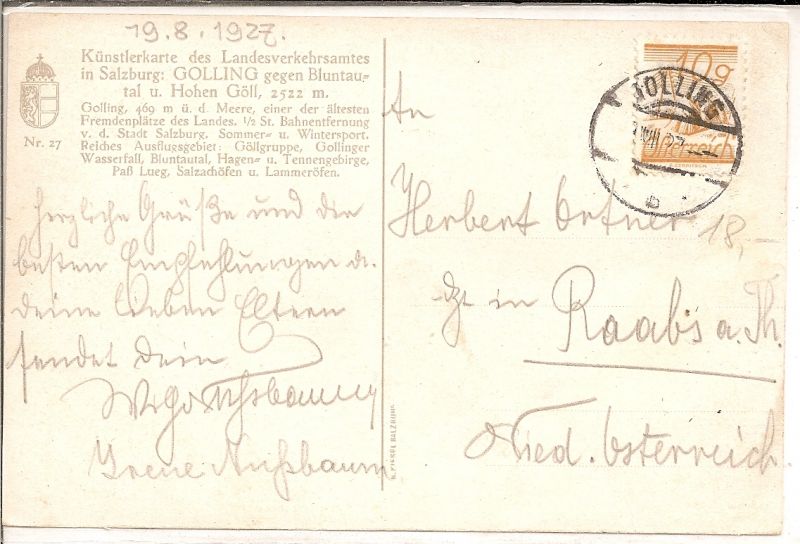 19.8.1927.
Künstlerkarte des Landesverkehrsamtes
in Salzburg: GOLLING gegen Bluntau-
tal u. Hohen Göll, 2522 m.
Golling, 469 m ü. d. Meere, einer der ältesten
Fremdenplätze des Landes. 1/2 St. Bahnentfernung
v. d. Stadt Salzburg. Sommer- u. Wintersport.
Reiches Ausflugsgebiet: Göllgruppe, Gollinger
Wasserfall, Bluntautal, Hagen- u. Tennengebirge,
Paß Lueg, Salzachöfen u. Lammeröfen.
Nr. 27
Herzliche Grüße und die
besten Empfehlungen a.
deine lieben Eltern
sendet dein
Nußbaum
Irene Nußbaum
10g
Österreich
GOLLING
An
Herbert Ortner
18,-
dzt in
Raabs a. Th.
Nied. Österreich